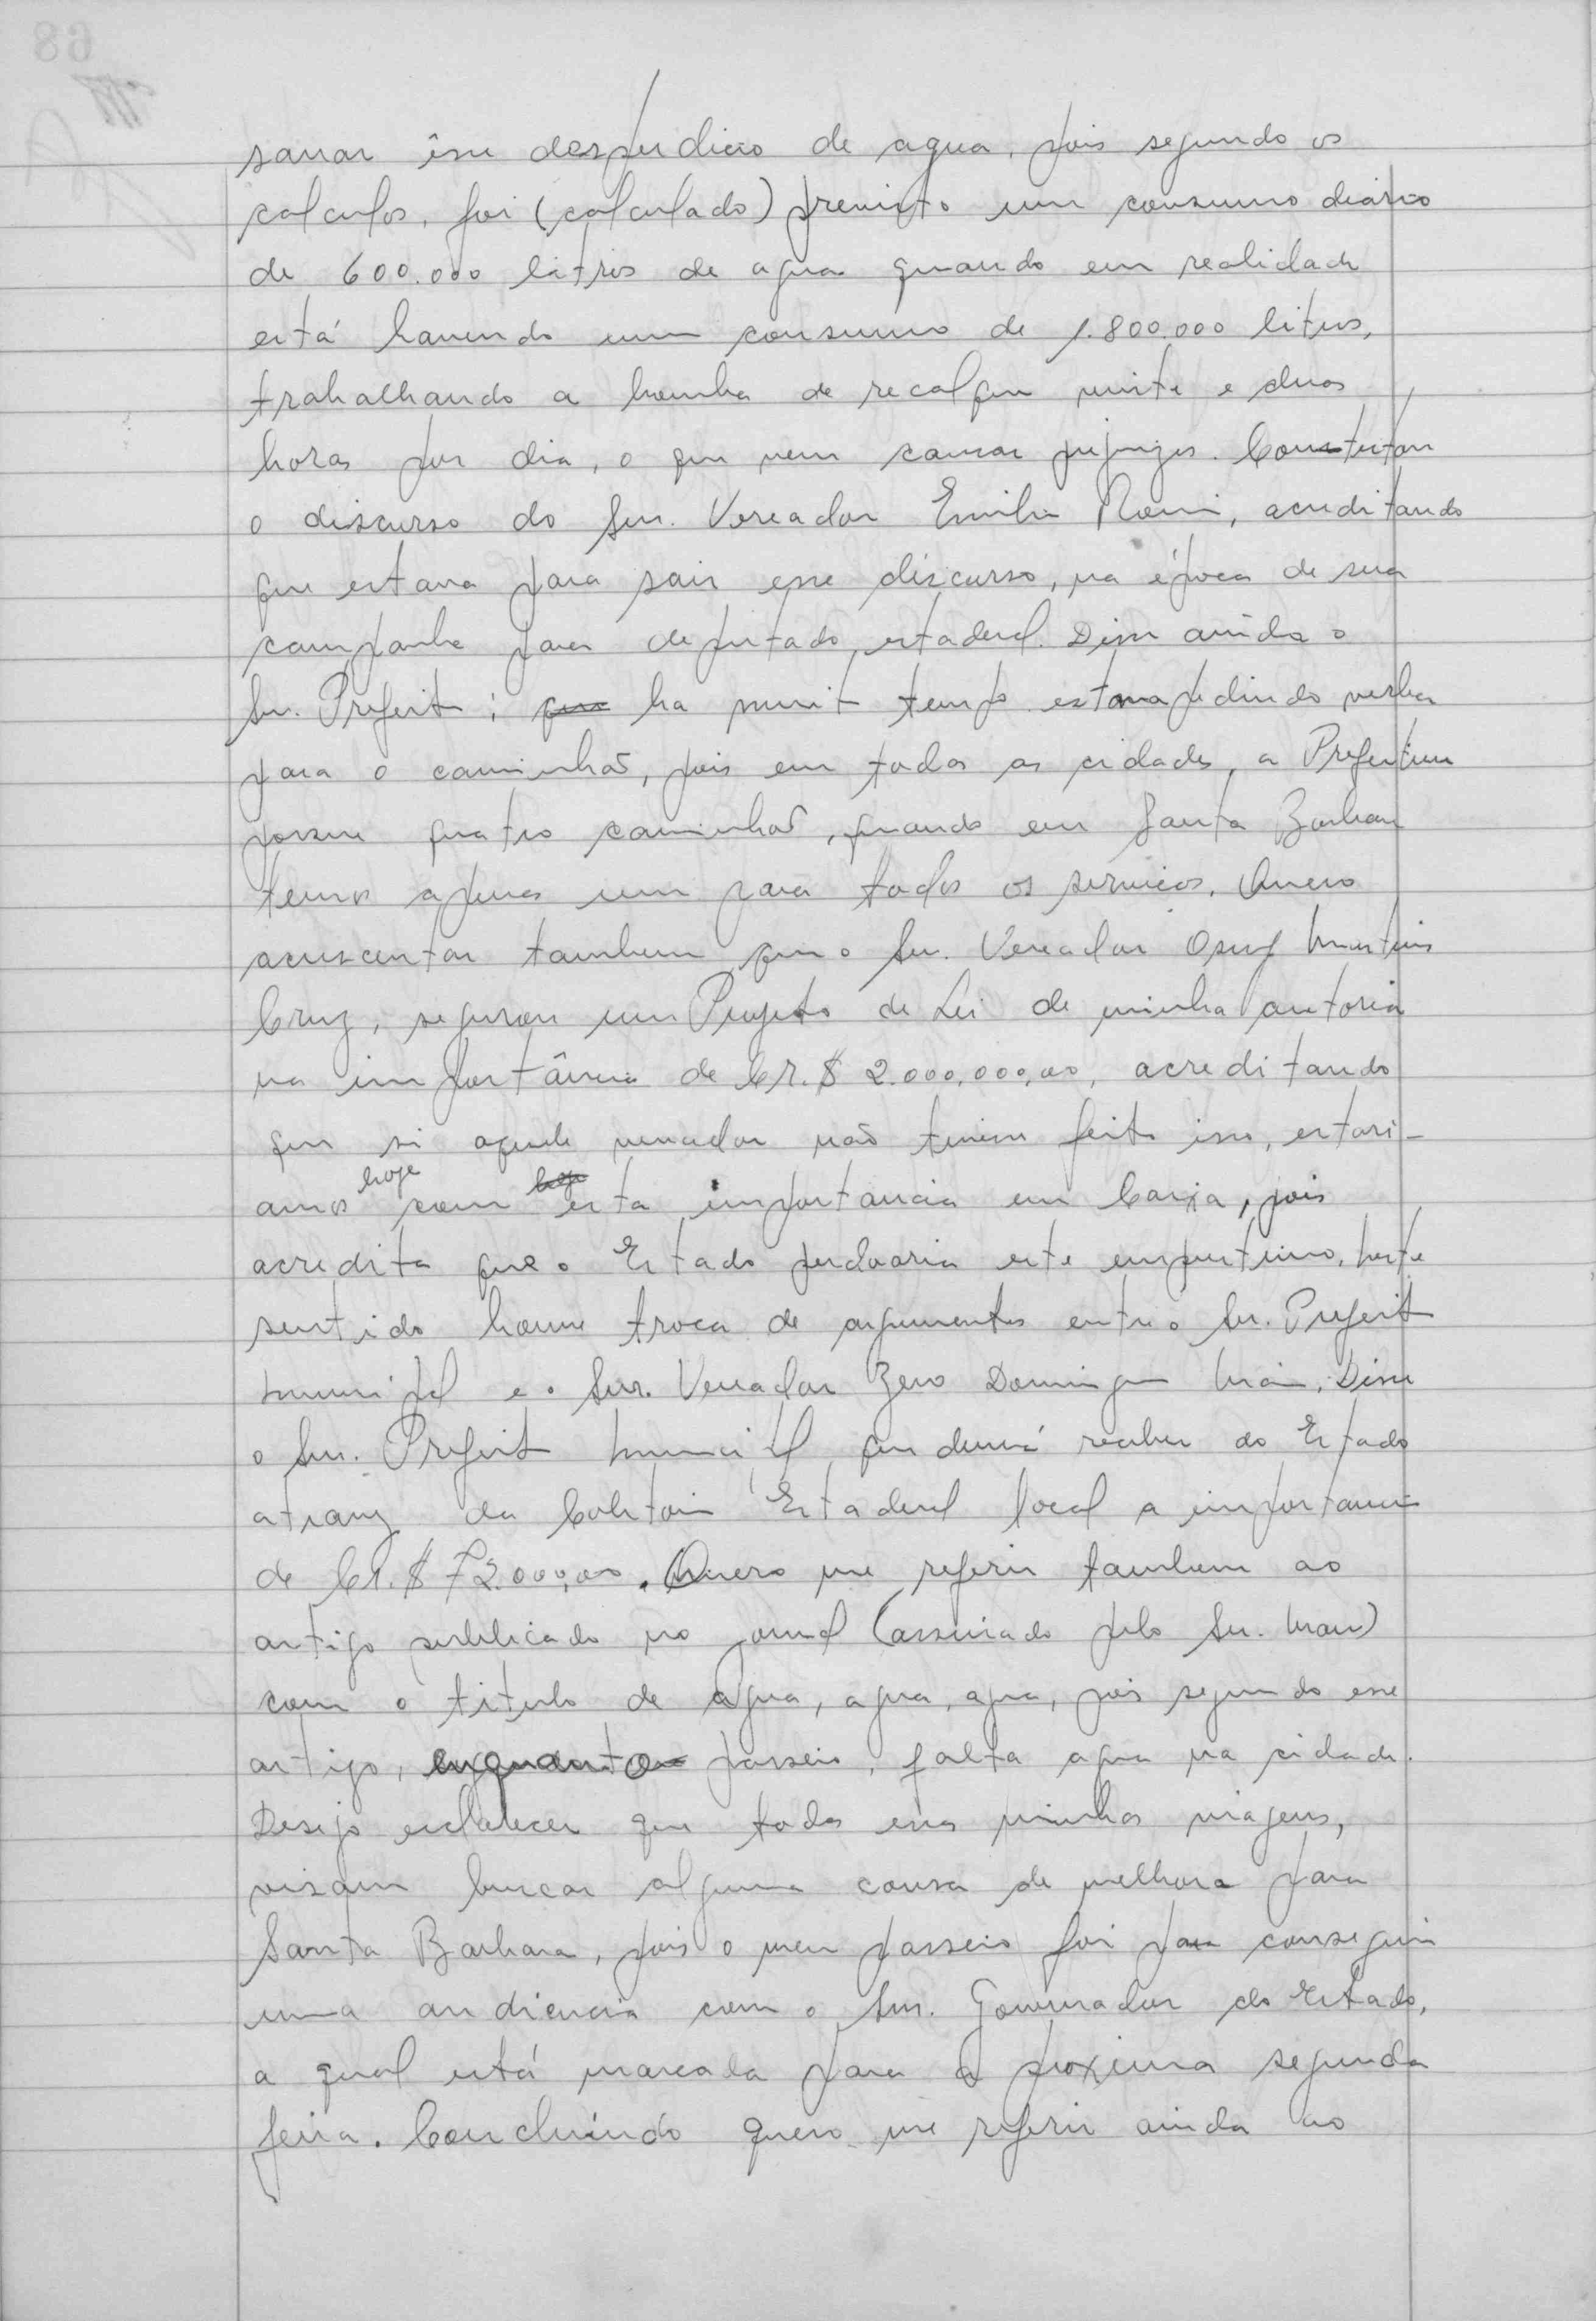 sanar êsse desperdicio de agua, pois segundo os
calculos, foi (calculado) previsto um consumo diário
de 600.000 litros de agua quando em realidade
está havendo um consumo de 1.800.000 litros,
trabalhando a bomba de recalque vinte e duas
horas por dia, o que vem causar prejuizos. Contestou
o discurso do Snr. Vereador Emilio Romi, acreditando
que estava para sair esse discurso, na época de sua
campanha para deputado estadual. Disse ainda o
Snr. Prefeito; que ha muito tempo estava pedindo verba
para o caminhão, pois em todas as cidades, a Prefeitura
possue quatro caminhão, quando em Santa Barbara
temos apenas um para todos os serviços. Quero
acrescentar tambem que o Snr. Vereador Martins
Cruz, segurou um Projeto de Lei de minha autoria
na importância de Cr.$ 2.000.000,00, acreditando
que si aquele vereador não tivesse feito isso, estari-
amos hoje com hoje esta importancia em Caixa, pois
acredita que o Estado perdoaria este emprestimo. Neste
sentido houve troca de argumentos entre o Snr. Prefeito
Municipal e o Snr. Vereador Zeno Domingues Maia. Disse
o Snr. Prefeito Municipal que deverá receber do Estado
atravz da Coletoria Estadual local a importancia
de Cr.$ 72.000,00. Quero me referir tambem ao
artigo publicado no jornal (assinado pelo Snr. )
com o titulo de agua, agua, agua, pois segundo esse
artigo, enquanto passeio, falta agua na cidade.
Desejo esclarecer que todas essas minhas viagens,
visam buscar alguma cousa de melhora para
Santa Barbara, pois o meu passeio foi para conseguir
uma audiencia com o Snr. Governador do Estado,
a qual está marcada para a proxima segunda
feira. Concluindo quero me referir ainda ao